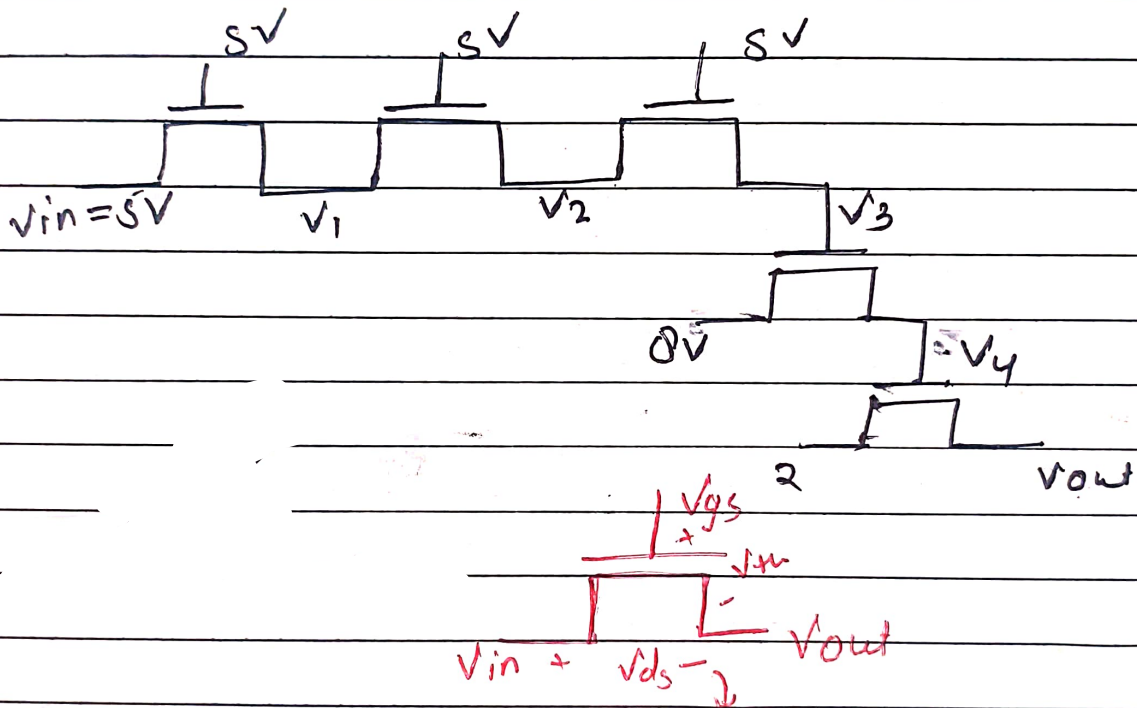 5V 5V 5V
Vin = 5V V1 V2 V3
0V V4
2 Vout
Vgs
+
Vth
-
Vin + Vds - Vout